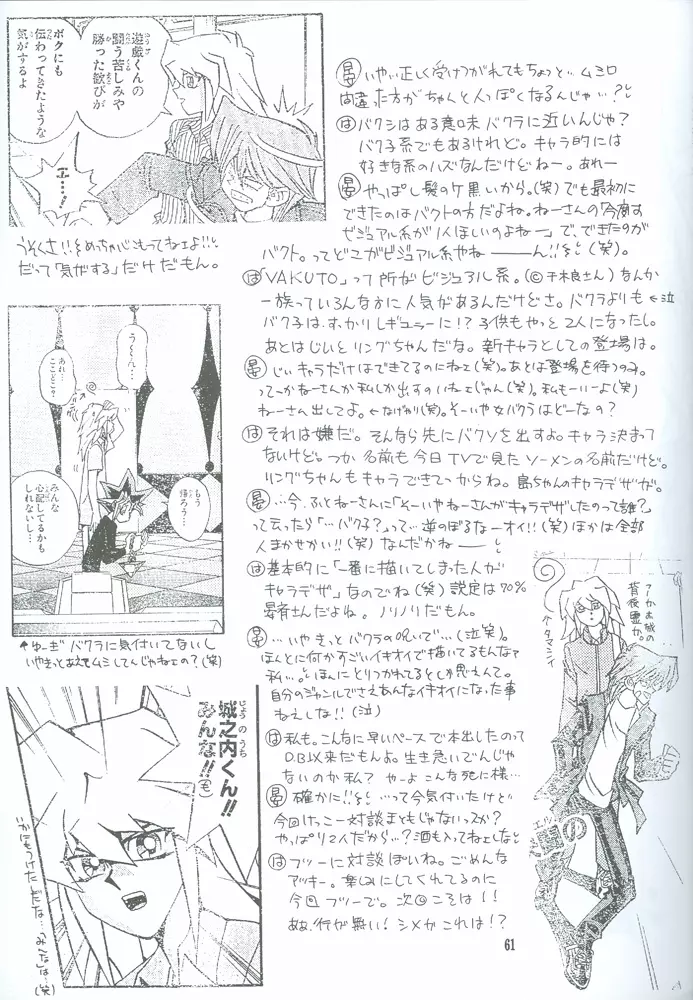 遊戯くんの
闘う苦しみや
勝った歓びが
ボクにも
伝わってきたような
気がするよ
エ…!
うそくさ!!をめっちゃ心もってねェよ!!
だって「気がする」だけだもん。
うーん…
あれ…
ここどこ?
もう
帰ろう…
みんな
心配してるかも
しれないし…
↑ゆーぎ バクラに気付いてないし
いやきっとあえてムシしてんじゃねェの?(笑)
城之内くん!!
みんな!!
も
晏 いやぃ正しく受けつがれてもちょっと… ムシロ
間違った方がちゃんと人っぽくなるんじゃ…?
は バクシはある意味バクラに近いんじゃ?
バク子系でもあるけれど。キャラ的には
好きな系のハズなんだけどねー。あれー
晏 やっぱし髪のケ黒いから。(笑)でも最初に
できたのはバクトの方だよね。ねーさんの「今度す
ビジュアル系が1人ほしいのよねー」で、できたのが
バクト。ってどこがビジュアル系やねーーーん!!(笑)。
は「VAKUTO」って所がビジュアル系。(©千木良さん)なんか
一族っているんなかに人気があるんだけどさ。バクラよりも ←泣
バク子は、すっかりレギュラーに!?子供もやっと2人になったし。
あとはじいとリングちゃんだな。新キャラとしての登場は。
晏 じぃキャラだけはできてるのにねェ(笑)。あとは登場を待つのみ。
ってーかねーさんか私しか出すのいねェじゃん(笑)。私もーいーよ(笑)
ねーさん出してよ。←なげやり(笑)。そーいや女バクラはどーなの?
は それは嫌だ。そんなら先にバクソを出すよ。キャラ決まって
ないけど。つか名前も今日TVで見たソーメンの名前だけど。
リングちゃんもキャラできてっからね。島ちゃんのキャラデザが。
晏 …今、ふとねーさんに「そーいやねーさんがキャラデザしたのって誰?」
って云ったら「…バク子?」って…逆のぼるなーオイ!!(笑)ほかは全部
人まかせかい!!(笑)なんだかねーー
は 基本的に「一番に描いてしまった人が
キャラデザ」なのでね(笑)設定は70%
晏斉さんだよね。ノリノリだもん。
晏 …いやきっとバクラの呪いで…(泣笑)。
ほんとに何かすごいイキオイで描いてるもんな?
私…。ほんにとりつかれてるとしか思えんて。
自分のジャンルでさえあんなイキオイになった事
ねェしな!!(泣)
は 私も。こんなに早いペースで本出したのって
D.B以来だもんよ。生き急いでんじゃ
ないのか私?やーよこんな死に様…
晏 確かに!!…って今気付いたけど
今回けっこー対談まともじゃないっスか?
やっぱり2人だから…?酒も入ってねェしな
は フツーに対談ぽいね。ごめんな
アッキー。楽しみにしてくれてるのに
今回フツーで。次回こそは!!
ああ、行が無い!シメがこれは!?
アーカ お城の
背後霊か。
↑タマシイ
61